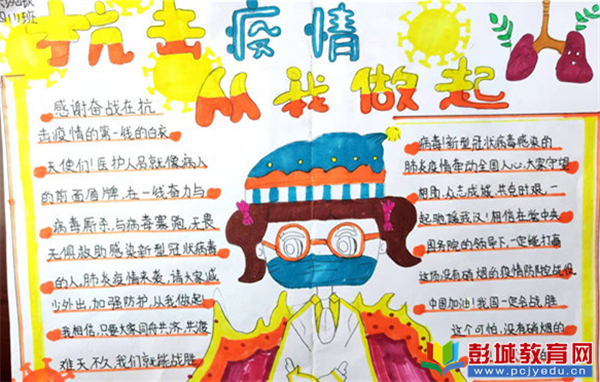 四11班
抗击疫情
从我做起
感谢奋战在抗
击疫情的第一线的白衣
天使们！医护人员就像病人
的前面盾牌，在一线奋力与
病毒厮杀，与病毒赛跑，无畏
无惧救助感染新型冠状病毒
的人。肺炎疫情来袭，请大家减
少外出，加强防护，从我做起
我相信，只要大家同舟共济，共渡
难关，不久，我们就能战胜
病毒！新型冠状病毒感染的
肺炎疫情牵动全国人心，大家守望
相助，众志成城，共克时艰，一
起驰援武汉！相信在党中央
国务院的领导下，一定能打赢
这场没有硝烟的疫情防控战役
中国加油！我国一定会战胜
这个可怕，没有硝烟的
彭城教育网
www.pcjyedu.cn